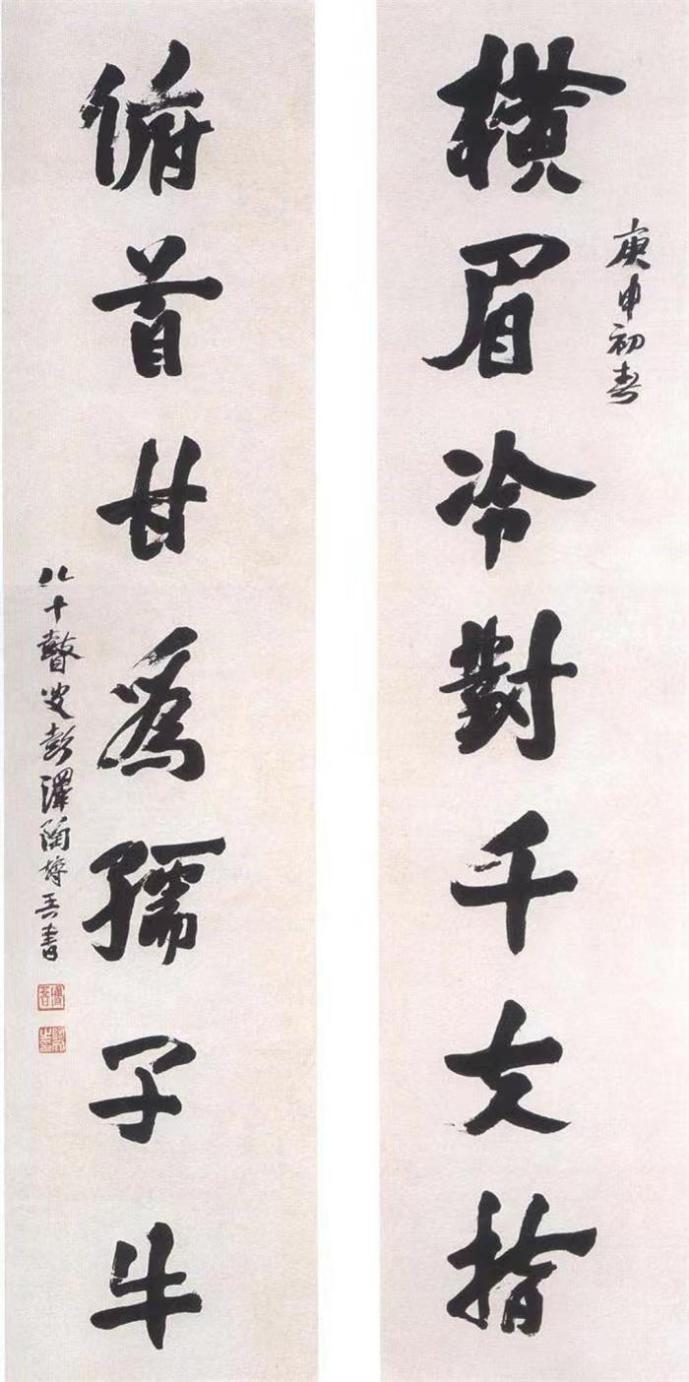 庚申初春
橫眉冷對千夫指
俯首甘為孺子牛
八十瞽叟彭澤陶博吾書